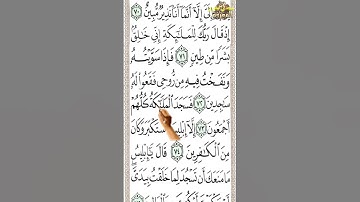 إِلَىَّ إِلَّآ أَنَّمَآ أَنَا۠ نَذِيرٌ مُّبِينٌ ٧٠
إِذْ قَالَ رَبُّكَ لِلْمَلَـٰٓئِكَةِ إِنِّى خَـٰلِقٌۢ
بَشَرًا مِّن طِينٍ ٧١ فَإِذَا سَوَّيْتُهُۥ
وَنَفَخْتُ فِيهِ مِن رُّوحِى فَقَعُوا۟ لَهُۥ
سَـٰجِدِينَ ٧٢ فَسَجَدَ ٱلْمَلَـٰٓئِكَةُ كُلُّهُمْ
أَجْمَعُونَ ٧٣ إِلَّآ إِبْلِيسَ ٱسْتَكْبَرَ وَكَانَ
مِنَ ٱلْكَـٰفِرِينَ ٧٤ قَالَ يَـٰٓإِبْلِيسُ
مَا مَنَعَكَ أَن تَسْجُدَ لِمَا خَلَقْتُ بِيَدَىَّ